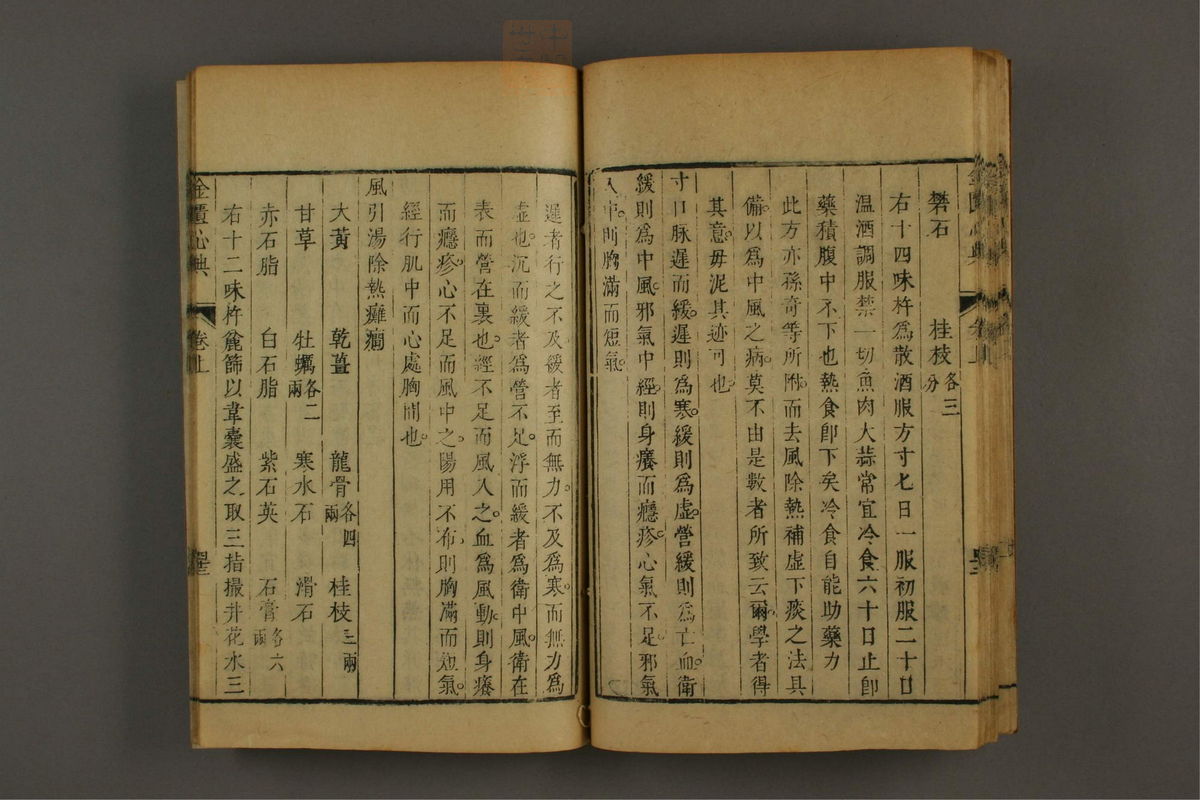 礬石 桂枝各三分
右十四味杵為散酒服方寸匕日一服初服二十日
温酒調服禁一切魚肉大蒜常宜冷食六十日止卽
藥積腹中不下也熱食卽下矣冷食自能助藥力
此方亦孫奇等所附而去風除熱補虛下痰之法具
備以為中風之病莫不由是數者所致云爾學者得
其意毋泥其迹可也
寸口脉遲而緩遲則為寒緩則為虛營緩則為亡血衛
緩則為中風邪氣中經則身癢而癮疹心氣不足邪氣
入中則胸滿而短氣
遲者行之不及緩者至而無力不及為寒而無力為
虛也沉而緩者為營不足浮而緩者為衛中風衛在
表而營在裏也經不足而風入之血為風動則身癢
而癮疹心不足而風中之陽用不布則胸滿而短氣
經行肌中而心處胸間也
風引湯除熱癱癎
大黃 乾薑 龍骨各四兩 桂枝三兩
甘草 牡蠣各二兩 寒水石 滑石
赤石脂 白石脂 紫石英 石膏各六兩
右十二味杵麄篩以韋囊盛之取三指撮井花水三
金匱心典 卷上